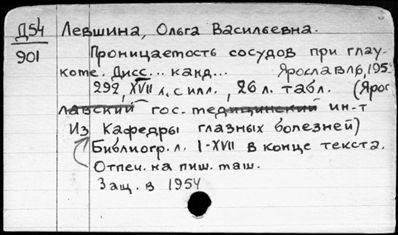 Д54 Левшина, Ольга Васильевна.
901 Проницаемость сосудов при глау-
коме. Дисс... канд... Ярославль, 195
292, XVII л. с илл., 26 л. табл. (Ярос
лавский гос. медицинский ин-т
Из Кафедры глазных болезней)
Библиогр. л. I-XVII в конце текста.
Отпеч. на пиш. маш.
Защ. в 1954